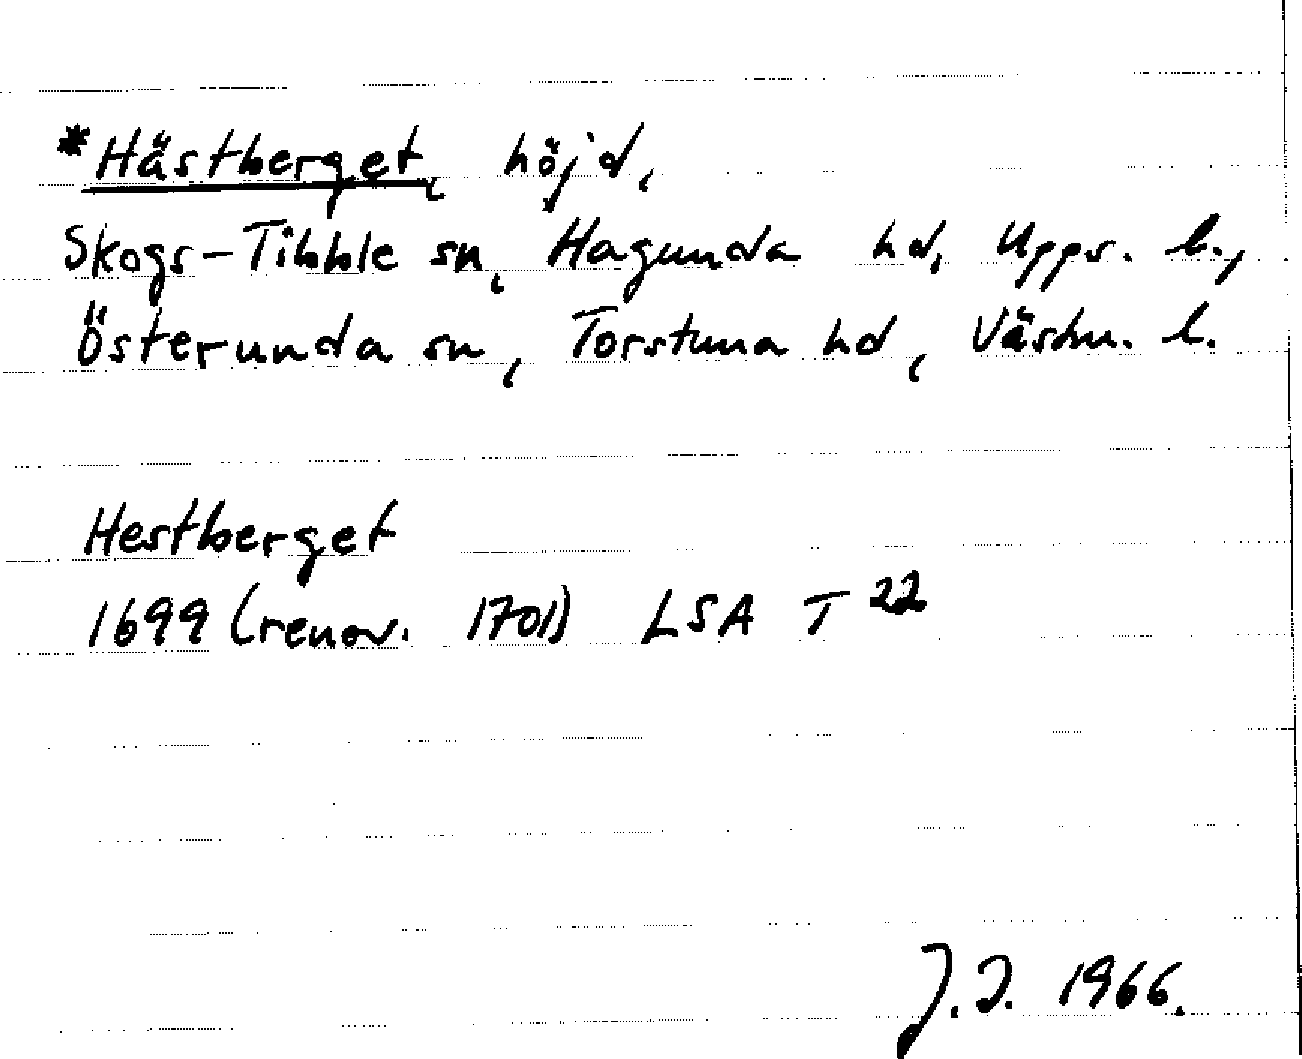 *Hästberget, höjd,
Skogs-Tibble sn, Hagunda hd, Upps. l.,
Österunda sn, Torstuna hd, Västm. l.
Hestberget
1699 (renov. 1701) LSA T 22
J.J. 1966.